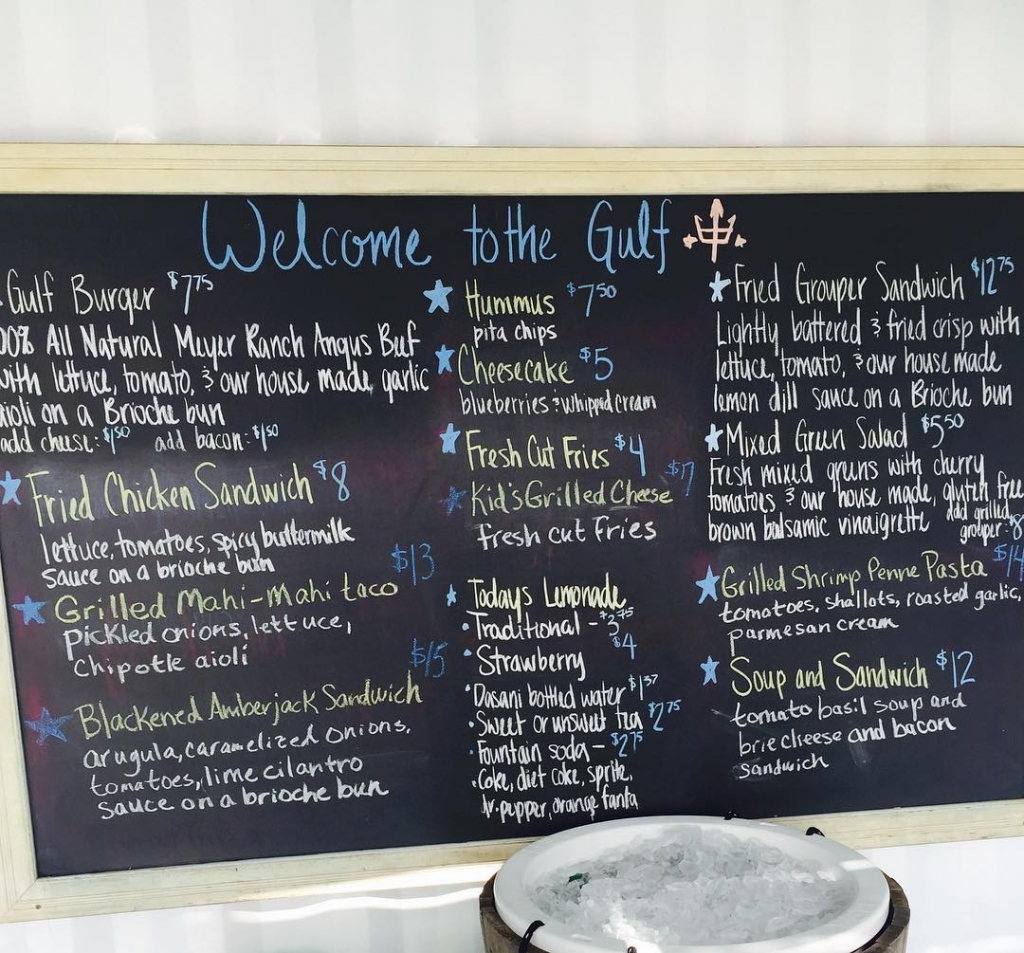 Welcome to the Gulf
Gulf Burger $7.75
00% All Natural Meyer Ranch Angus Beef
with lettuce, tomato, & our house made garlic
aioli on a Brioche bun
add cheese: $1.50 add bacon: $1.50
Fried Chicken Sandwich $8
lettuce, tomatoes, spicy buttermilk
sauce on a brioche bun
$13
Grilled Mahi-Mahi taco
pickled onions, lettuce,
chipotle aioli
$15
Blackened Amberjack Sandwich
arugula, caramelized onions,
tomatoes, lime cilantro
sauce on a brioche bun
Hummus $7.50
pita chips
Cheesecake $5
blueberries & whipped cream
Fresh Cut Fries $4
$7
Kid's Grilled Cheese
fresh cut fries
Todays Lemonade
• Traditional - $3.75
• Strawberry $4
• Dasani bottled water $1.57
• Sweet or unsweet tea $2.75
• Fountain soda - $2.75
• Coke, diet coke, sprite,
dr. pepper, orange fanta
Fried Grouper Sandwich $12.75
Lightly battered & fried crisp with
lettuce, tomato, & our house made
lemon dill sauce on a Brioche bun
Mixed Green Salad $5.50
Fresh mixed greens with cherry
tomatoes & our house made, gluten free
brown balsamic vinaigrette add grilled
grouper: $8
$14
Grilled Shrimp Penne Pasta
tomatoes, shallots, roasted garlic,
parmesan cream
Soup and Sandwich $12
tomato basil soup and
brie cheese and bacon
sandwich